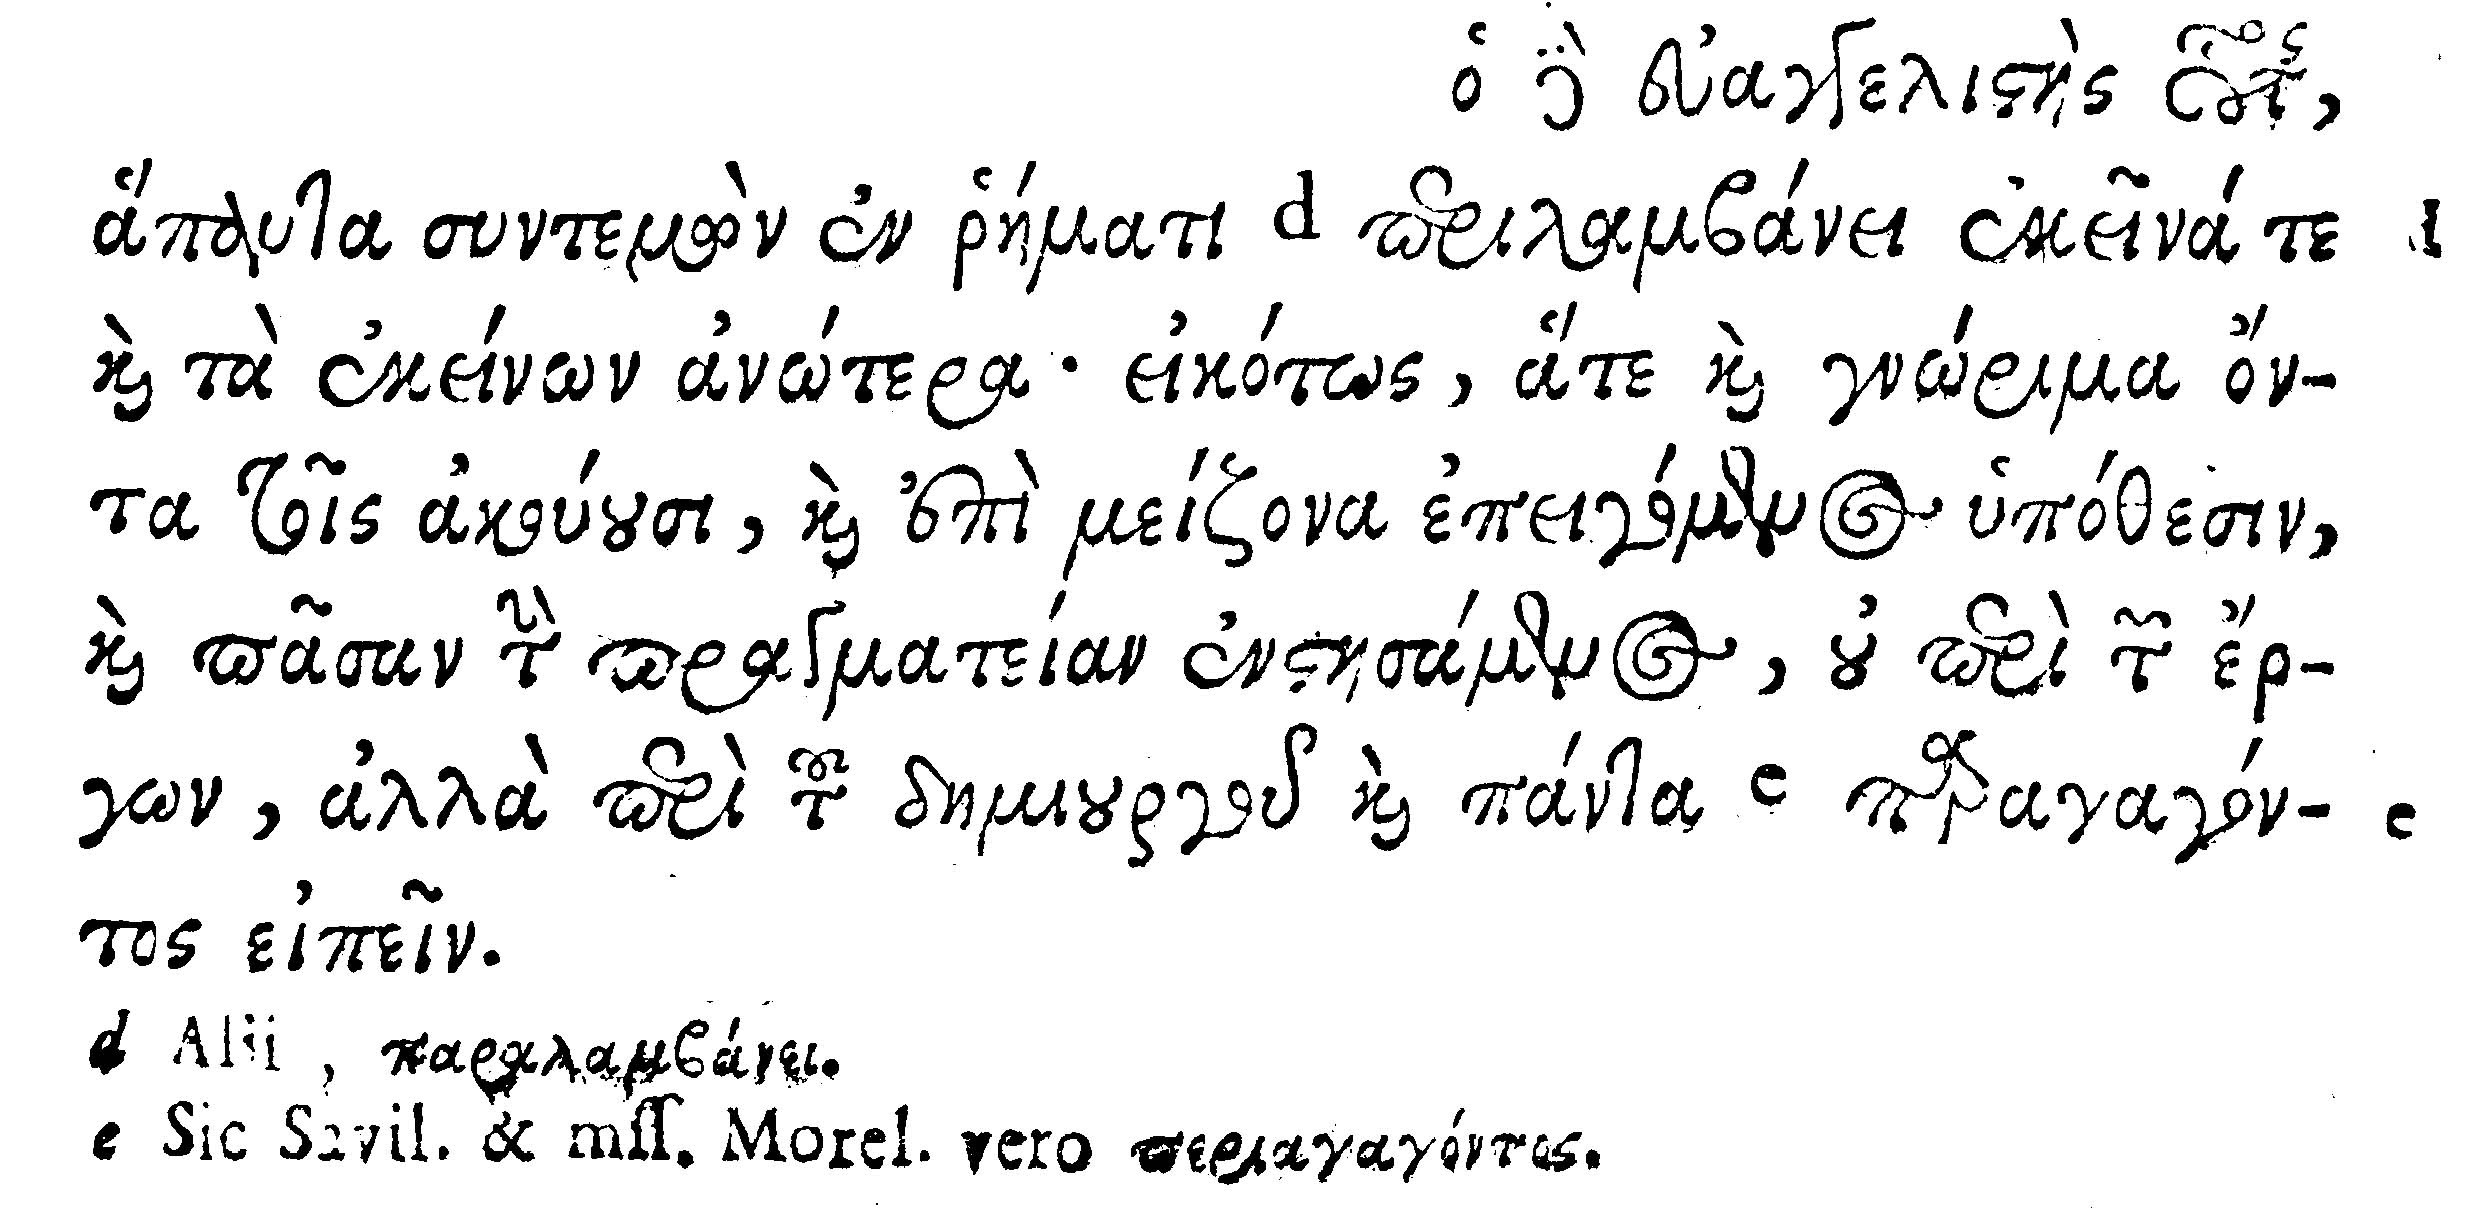 ὁ δὲ εὐαγγελιστὴς οὗτος,
ἅπαντα συντεμὼν ἐν ῥήματι d περιλαμβάνει ἐκεῖνά τε
καὶ τὰ ἐκείνων ἀνώτερα· εἰκότως, ἅτε καὶ γνώριμα ὄν-
τα τοῖς ἀκούουσι, καὶ ἐπὶ μείζονα ἐπειγόμενος ὑπόθεσιν,
καὶ πᾶσαν τὴν πραγματείαν ἐνστησάμενος, οὐ περὶ τῶν ἔρ-
γων, ἀλλὰ περὶ τοῦ δημιουργοῦ καὶ πάντα e παραγαγόν- e
τος εἰπεῖν.
d Alii, παραλαμβάνει.
e Sic Savil. & mss. Morel. vero περιαγαγόντος.